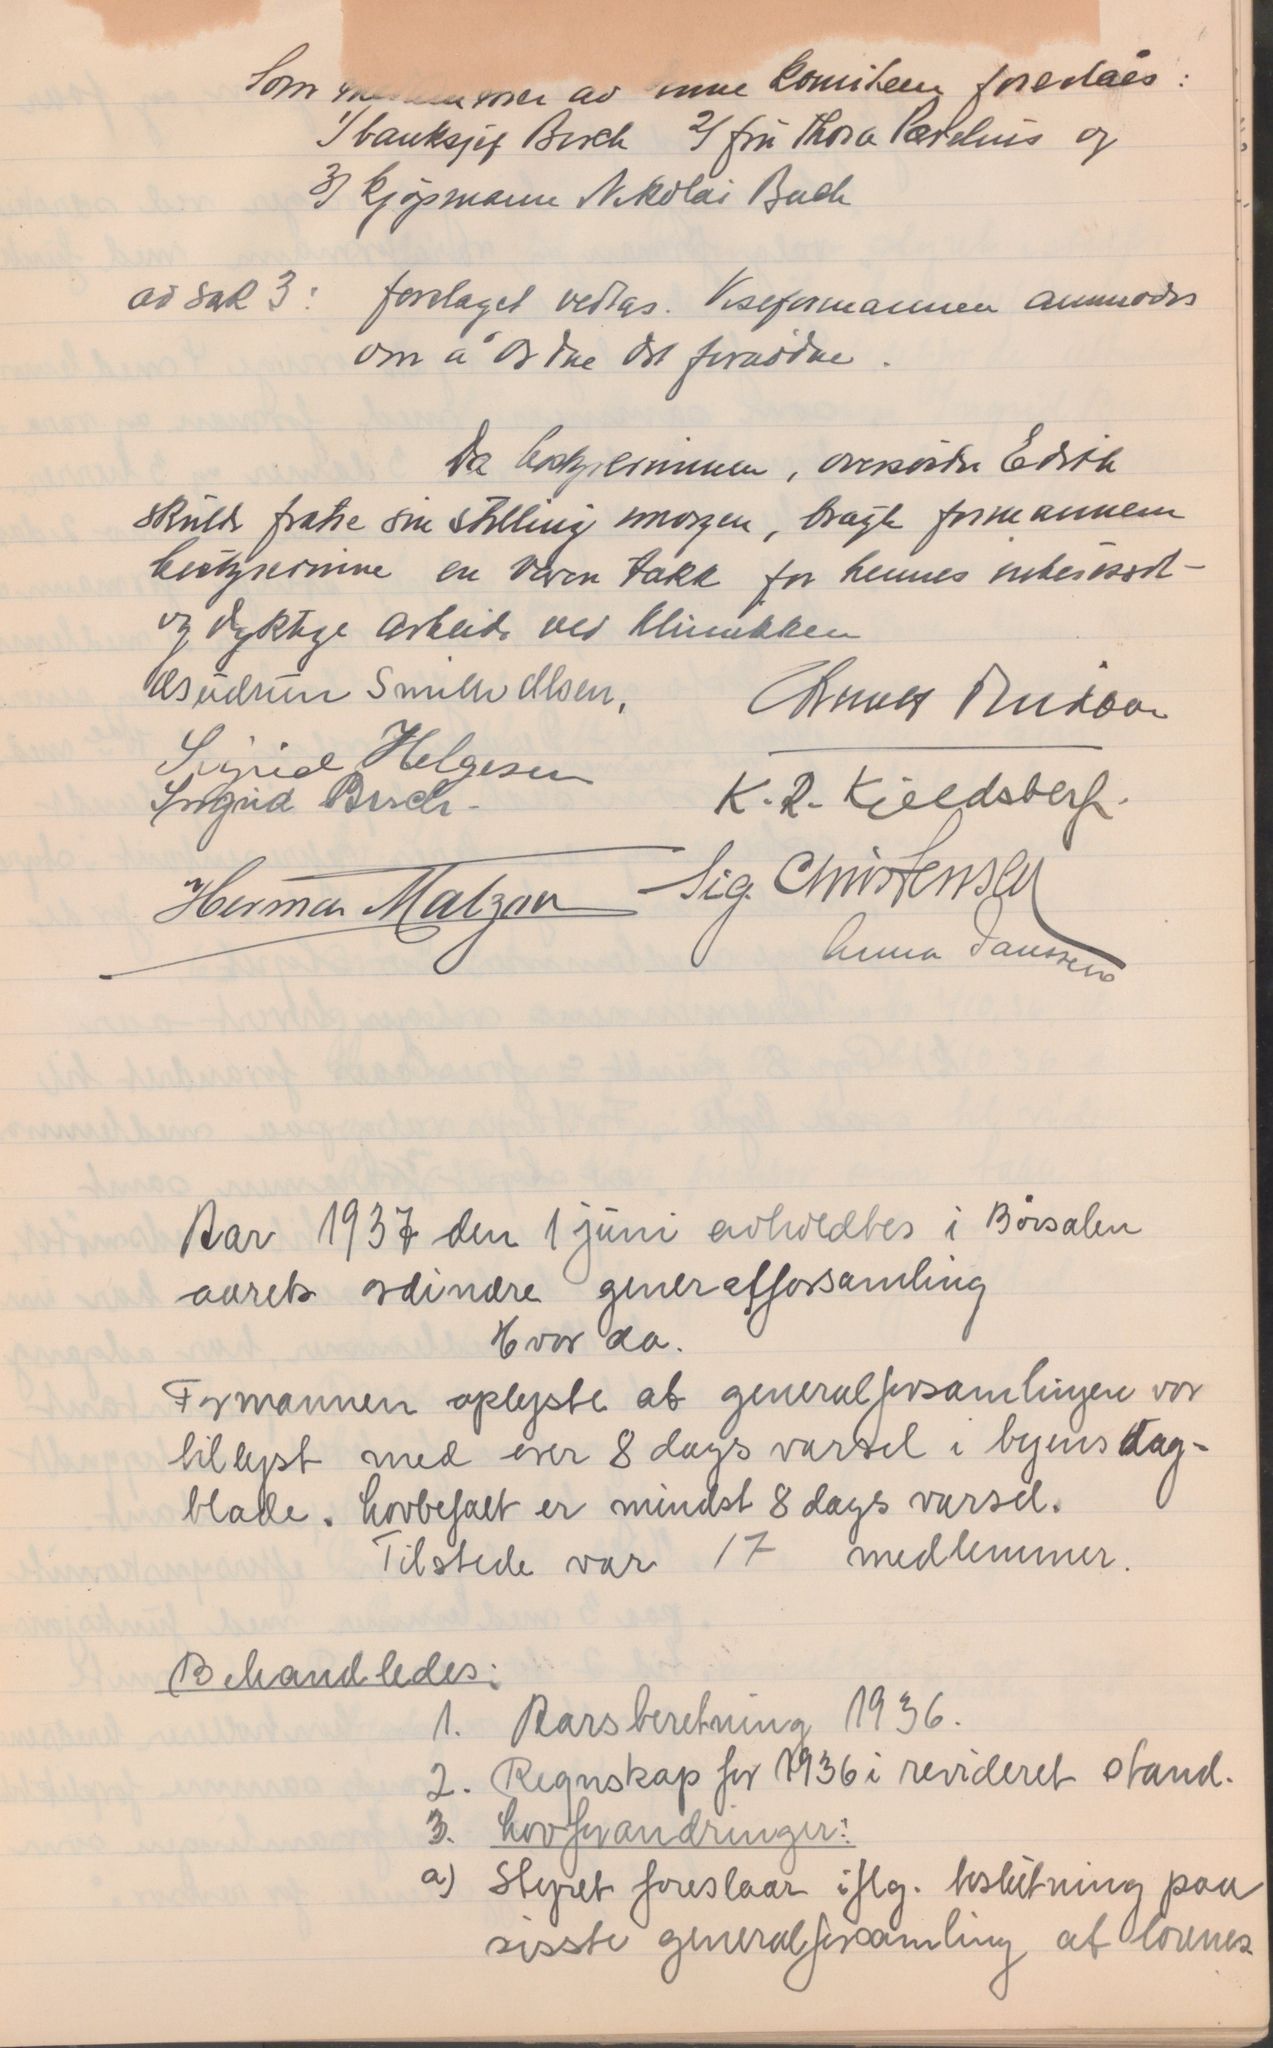 Som medlemmer av denne komiteen foreslåes:
1/ banksjef Birch 2/ frú Thora Parelius og
3/ kjøpmann Nikolai Buch
ad sak 3: forslaget vedtas. Viseformannen anmodes
om å ordne det fornødne.
Da bestyrerinnen, oversøster Edith
skulde fratre sin stilling imorgen, bragte formannen
bestyrerinne en varm takk for hennes interessert-
og dyktige arbeide ved klinikken
Gúdrún Smith Olsen,
Sigrid Helgesen
Ingrid Birch.
K. R. Kjeldsberg.
Herman Matzow
Sig. Christensen
Anna Janssen
Aar 1937 den 1 júni avholdtes i Børsalen
aarets ordinære generalforsamling
Hvor da.
Formannen oplyste at generalforsamlingen var
tillyst med over 8 dags varsel i byens dag-
blade. Lovbefalt er mindst 8 dags varsel.
Tilstede var 17 medlemmer.
Behandledes:
1. Aarsberetning 1936.
2. Regnskap for 1936 i revideret stand.
3. Lovforandringer:
a) Styret foreslaar iflg. beslútning paa
sisste generalforsamling at lovenes